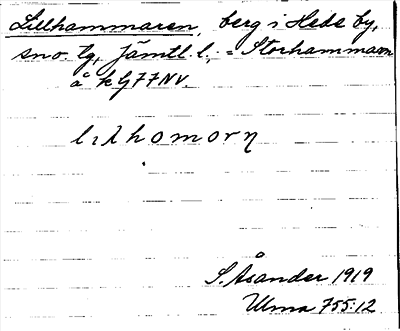 Lillhammaren, berg i Hede by,
sno. tg, Jämtl. l., = Storhammaren
å kG77NV.
lılhomorη
S. Åsander 1919
Ulma 755:12